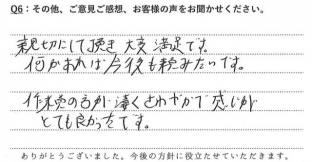 Q6：その他、ご意見ご感想、お客様の声をお聞かせください。
親切にして頂き大変満足です。
何かあれば今後も頼みたいです。
作業の方が凄くさわやかで感じが
とても良かったです。
ありがとうございました。今後の方針に役立たせていただきます。